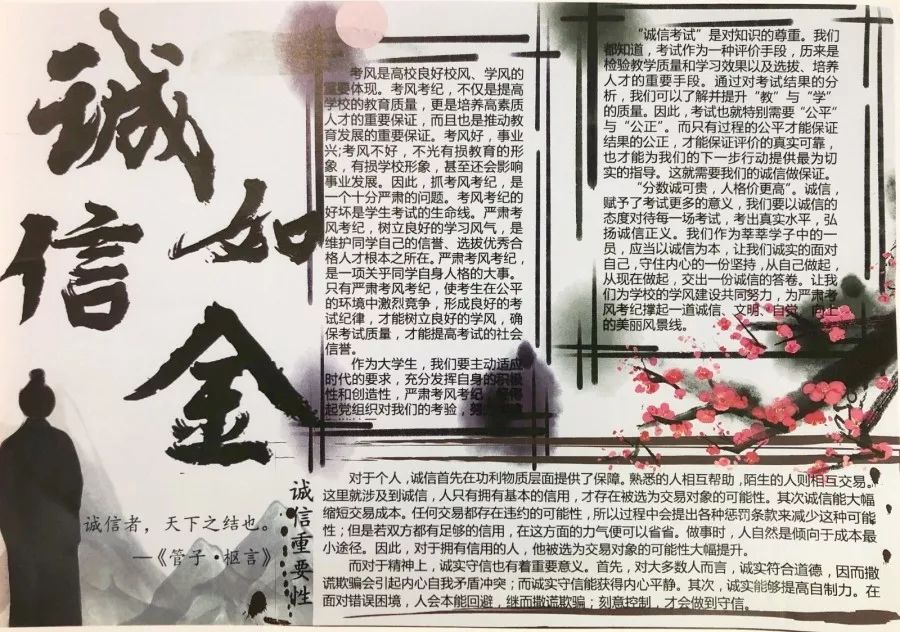 诚信
如金
诚信者，天下之结也。
—《管子·枢言》
考风是高校良好校风、学风的
重要体现。考风考纪，不仅是提高
学校的教育质量，更是培养高素质
人才的重要保证，而且也是推动教
育发展的重要保证。考风好，事业
兴;考风不好，不光有损教育的形
象，有损学校形象，甚至还会影响
事业发展。因此，抓考风考纪，是
一个十分严肃的问题。考风考纪的
好坏是学生考试的生命线。严肃考
风考纪，树立良好的学习风气，是
维护同学自己的信誉、选拔优秀合
格人才根本之所在。严肃考风考纪，
是一项关乎同学自身人格的大事。
只有严肃考风考纪，使考生在公平
的环境中激烈竞争，形成良好的考
试纪律，才能树立良好的学风，确
保考试质量，才能提高考试的社会
信誉。
作为大学生，我们要主动适应
时代的要求，充分发挥自身的积极
性和创造性，严肃考风考纪，经得
起党组织对我们的考验，努
“诚信考试”是对知识的尊重。我们
都知道，考试作为一种评价手段，历来是
检验教学质量和学习效果以及选拔、培养
人才的重要手段。通过对考试结果的分
析，我们可以了解并提升“教”与“学”
的质量。因此，考试也就特别需要“公平”
与“公正”。而只有过程的公平才能保证
结果的公正，才能保证评价的真实可靠，
也才能为我们的下一步行动提供最为切
实的指导。这就需要我们的诚信做保证。
“分数诚可贵，人格价更高”。诚信，
赋予了考试更多的意义，我们要以诚信的
态度对待每一场考试，考出真实水平，弘
扬诚信正义。我们作为莘莘学子中的一
员，应当以诚信为本，让我们诚实的面对
自己，守住内心的一份坚持，从自己做起，
从现在做起，交出一份诚信的答卷。让我
们为学校的学风建设共同努力，为严肃考
风考纪撑起一道诚信、文明、自觉、向上
的美丽风景线。
诚信重要性
对于个人，诚信首先在功利物质层面提供了保障。熟悉的人相互帮助，陌生的人则相互交易。
这里就涉及到诚信，人只有拥有基本的信用，才存在被选为交易对象的可能性。其次诚信能大幅
缩短交易成本。任何交易都存在违约的可能性，所以过程中会提出各种惩罚条款来减少这种可能
性；但是若双方都有足够的信用，在这方面的力气便可以省省。做事时，人自然是倾向于成本最
小途径。因此，对于拥有信用的人，他被选为交易对象的可能性大幅提升。
而对于精神上，诚实守信也有着重要意义。首先，对大多数人而言，诚实符合道德，因而撒
谎欺骗会引起内心自我矛盾冲突；而诚实守信能获得内心平静。其次，诚实能够提高自制力。在
面对错误困境，人会本能回避，继而撒谎欺骗；刻意控制，才会做到守信。